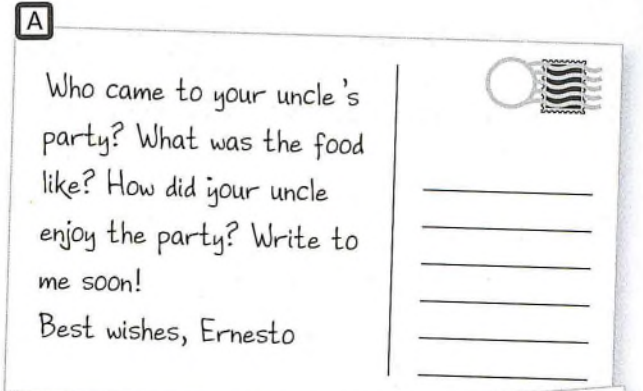 A
Who came to your uncle's
party? What was the food
like? How did your uncle
enjoy the party? Write to
me soon!
Best wishes, Ernesto